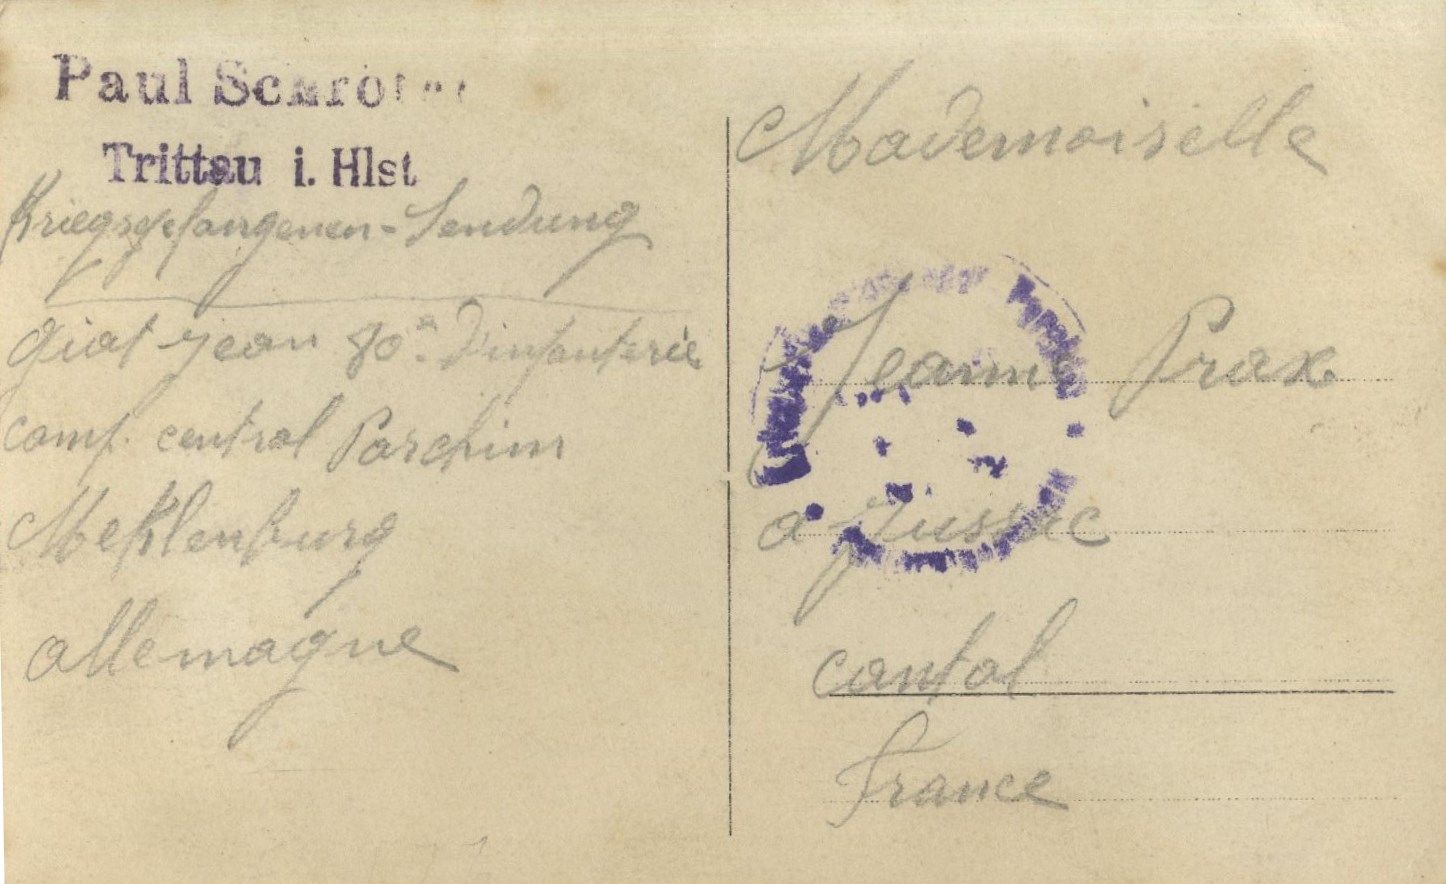 Paul Schröter
Trittau i. Hlst
Kriegsgefangenen-Sendung
giat jean 80e d'infanterie
camp. central Parchim
Meklenburg
allemagne
Mademoiselle
Jeanne Prax
a jussac
cantal
france